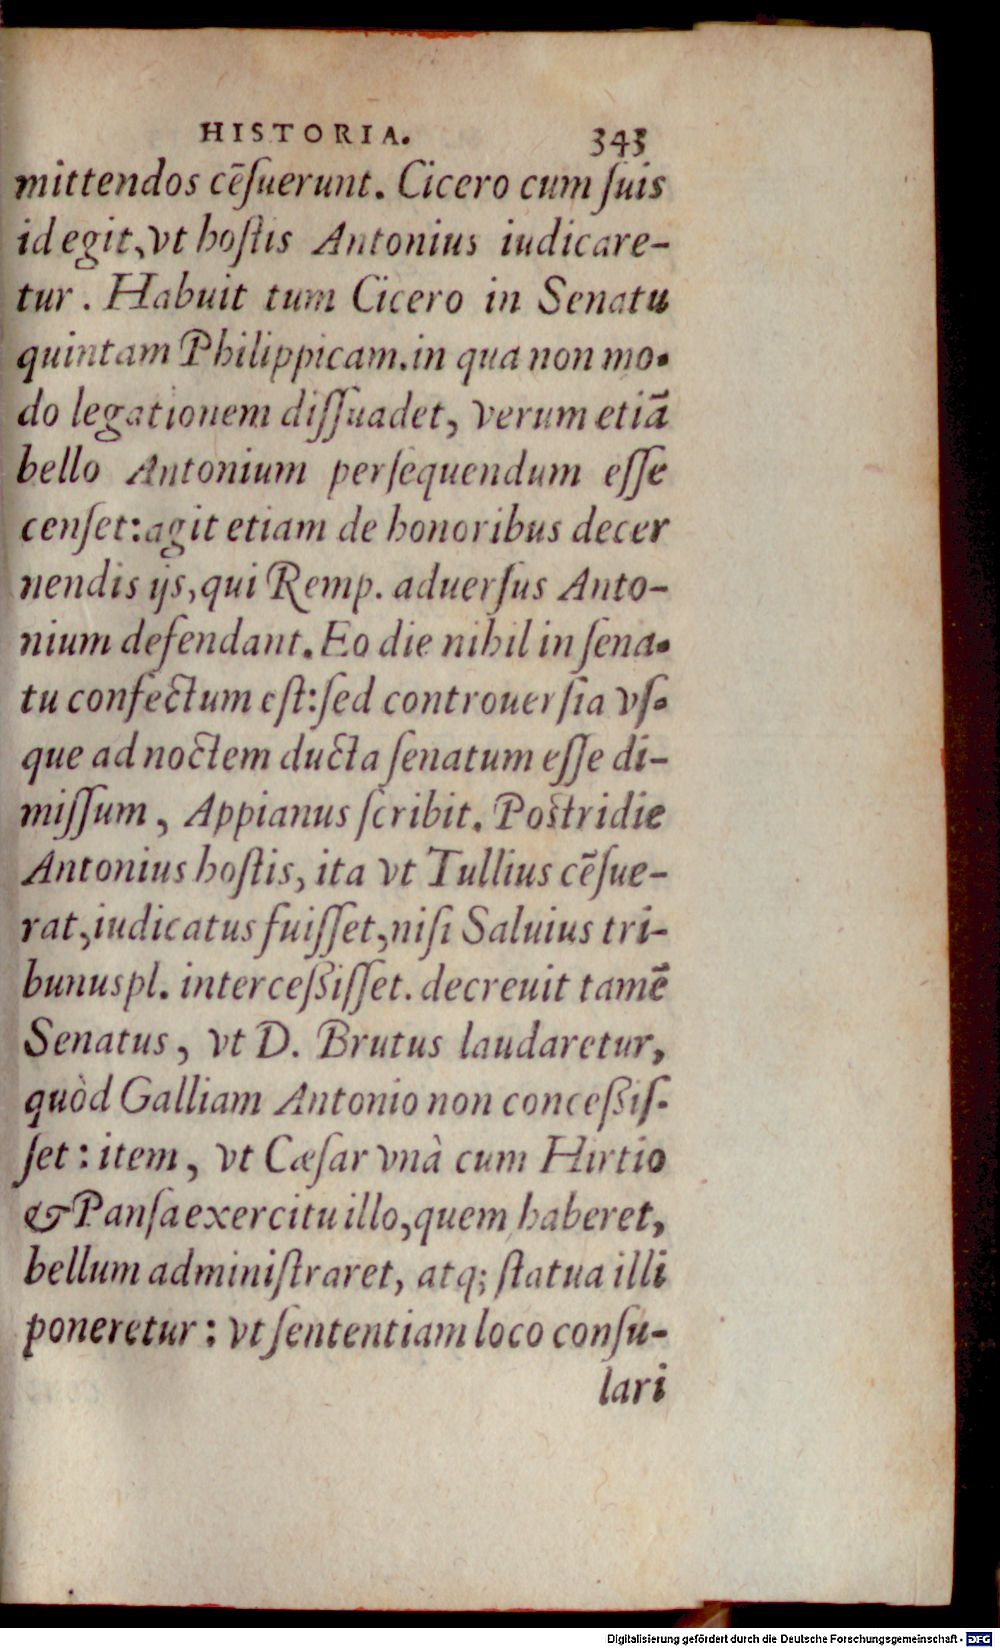 HISTORIA. 343
mittendos cēſuerunt. Cicero cum ſuis
id egit, vt hoſtis Antonius iudicare-
tur. Habuit tum Cicero in Senatu
quintam Philippicam. in qua non mo-
do legationem diſſuadet, verum etiā
bello Antonium perſequendum eſſe
cenſet: agit etiam de honoribus decer
nendis ijs, qui Remp. aduerſus Anto-
nium defendant. Eo die nihil in ſena-
tu confectum eſt: ſed controuerſia vſ-
que ad noctem ducta ſenatum eſſe di-
miſſum, Appianus ſcribit. Poſtridie
Antonius hoſtis, ita vt Tullius cēſue-
rat, iudicatus fuiſſet, niſi Saluius tri-
bunus pl. interceßiſſet. decreuit tamē
Senatus, vt D. Brutus laudaretur,
quòd Galliam Antonio non conceßiſ-
ſet: item, vt Cæſar vnà cum Hirtio
& Panſa exercitu illo, quem haberet,
bellum adminiſtraret, atq; ſtatua illi
poneretur: vt ſententiam loco conſu-
lari
Digitalisierung gefördert durch die Deutsche Forschungsgemeinschaft - DFG